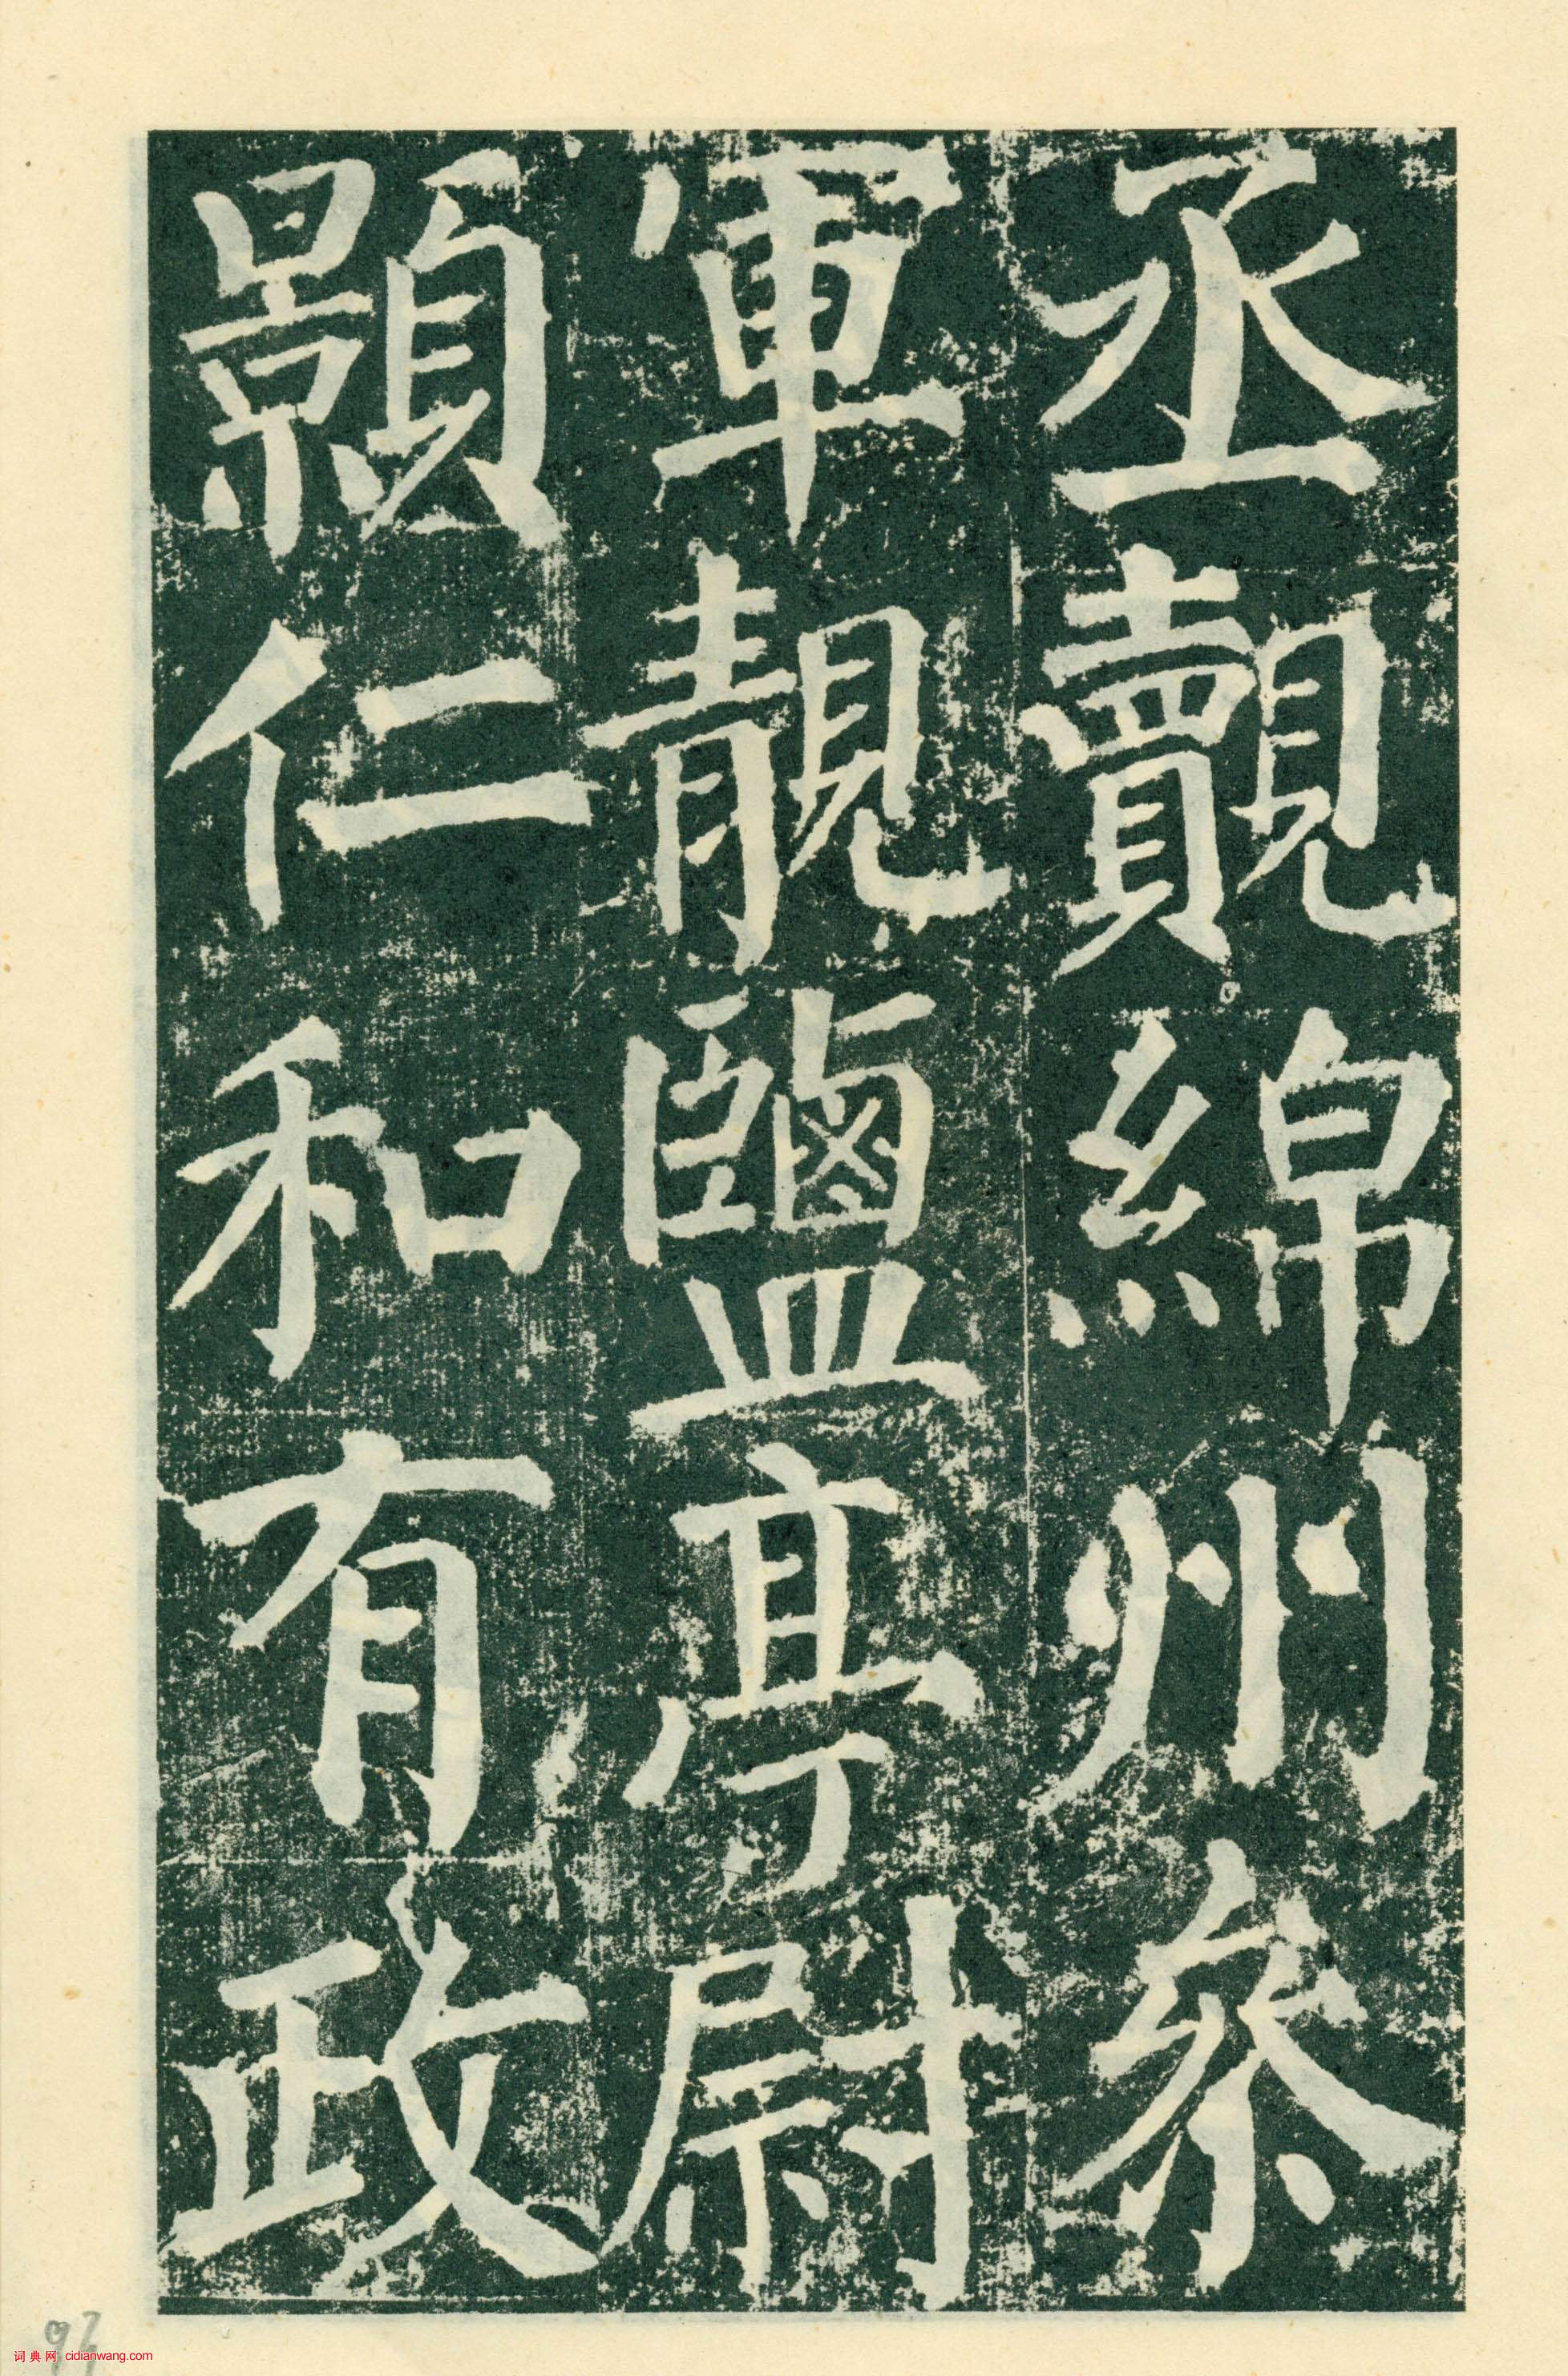 丞覿綿州參
軍靚鹽亭尉
顥仁和有政
97
词典网 cidianwang.com